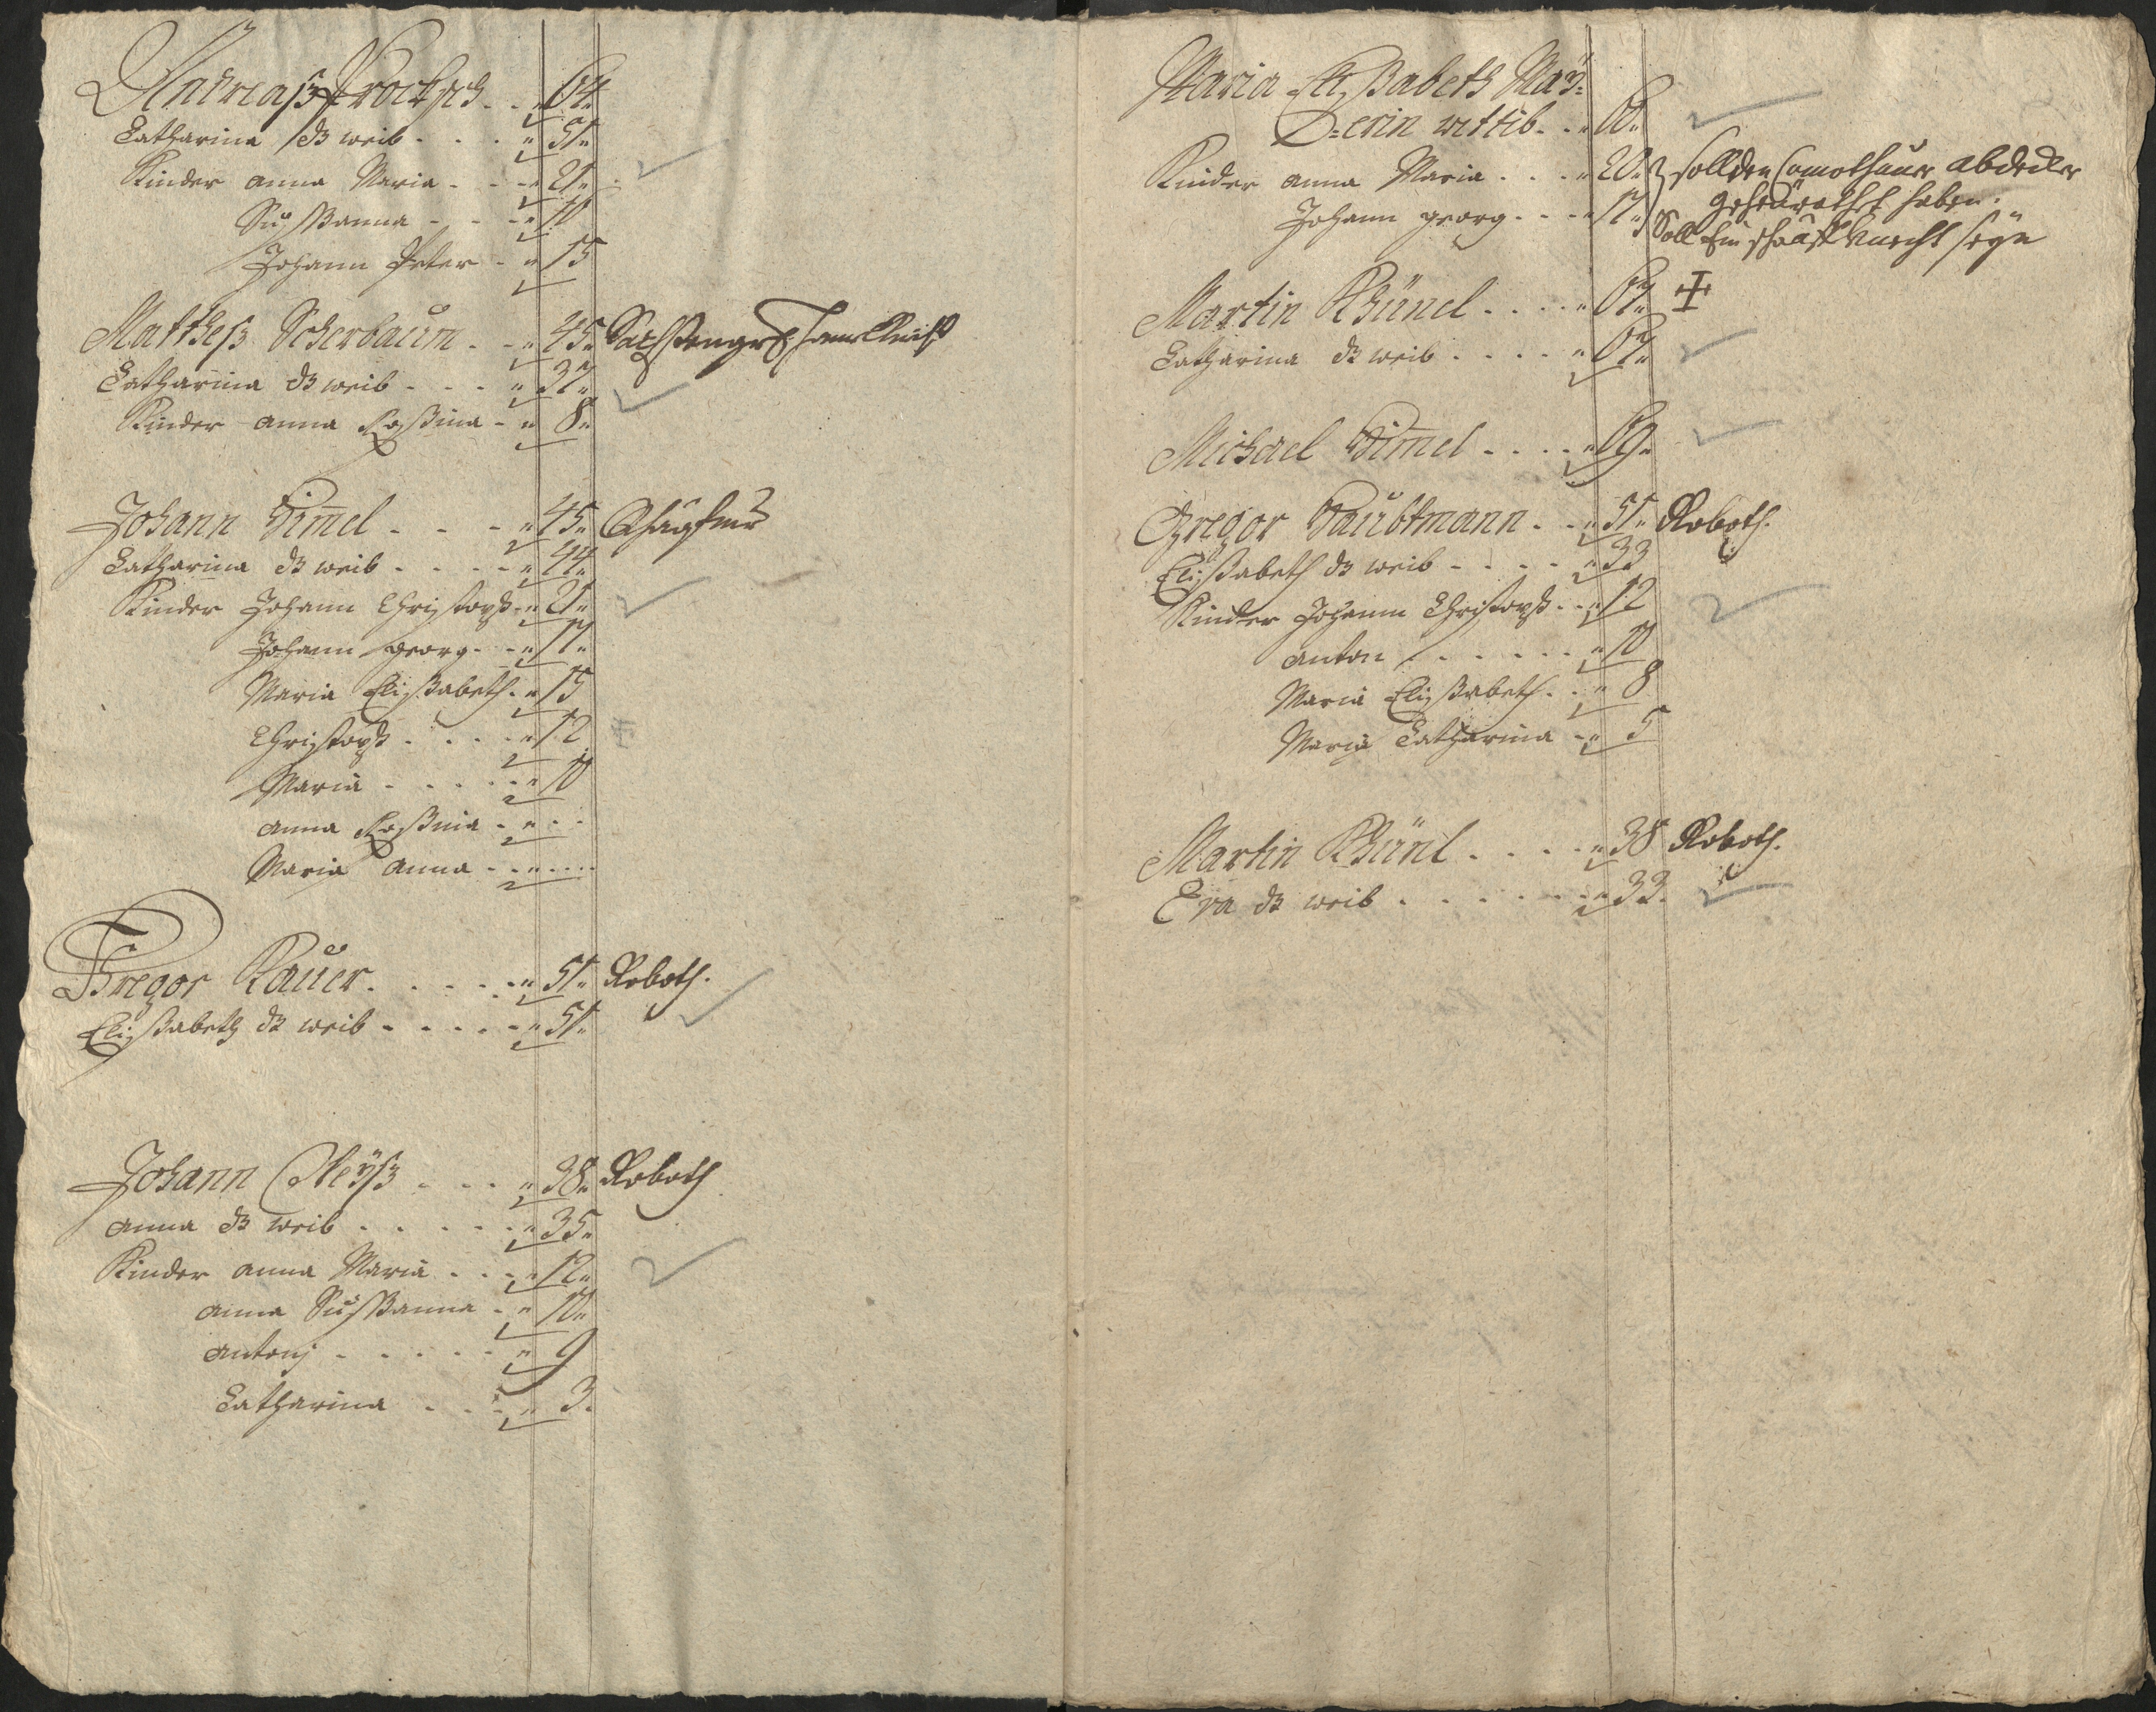 Andreaß Procksch . . 64
Catharina ds weib . . . 51
Kinder anna Maria . . . 21
Sußanna . . . 18
Johann Peter . . 15
Matthesß Scherbaum . . 45
Catharina ds weib . . . 37
Kinder anna Roßina . . 8
Johann Himel . . . 45
Catharina ds weib . . . . 44
Kinder Johann Christoph . . 21
Johann georg . . 17
Maria Elißabeth . 15
Christoph . . . . 12
Maria . . . . . 10
anna Roßina . . . .
Maria anna . . . . . .
Gregor Bauer . . . . . 51 Roboth.
Elißabeth ds weib . . . . . 51
Johann Neyß . . . 38 Roboth
anna ds weib . . . . . 35
Kinder anna Maria . . . 12
anna Sußanna . . 10
Antonj . . . . . 9
Catharina . . . 3
Maria Elißabeth May=
D=erin wittib . . 60
Kinder anna Maria . . . 20 soll den Comothauer abdecker
geheürathet haben.
Johann georg . . . 17 Soll Ein schaff Knecht seyn
Martin Khünel . . . . 67
Catharina ds weib . . . . 67
Michael Himel . . . . 69
Gregor Haubtmann . . 51 Roboth.
Elißabeth ds weib . . . . 33
Kinder Johann Christoph . . 12
anton . . . . . . 10
Maria Elißabeth . . 8
Maria Catharina . . 5
Martin Khünl . . . . 38 Roboth.
Eva ds weib . . . . . . 33